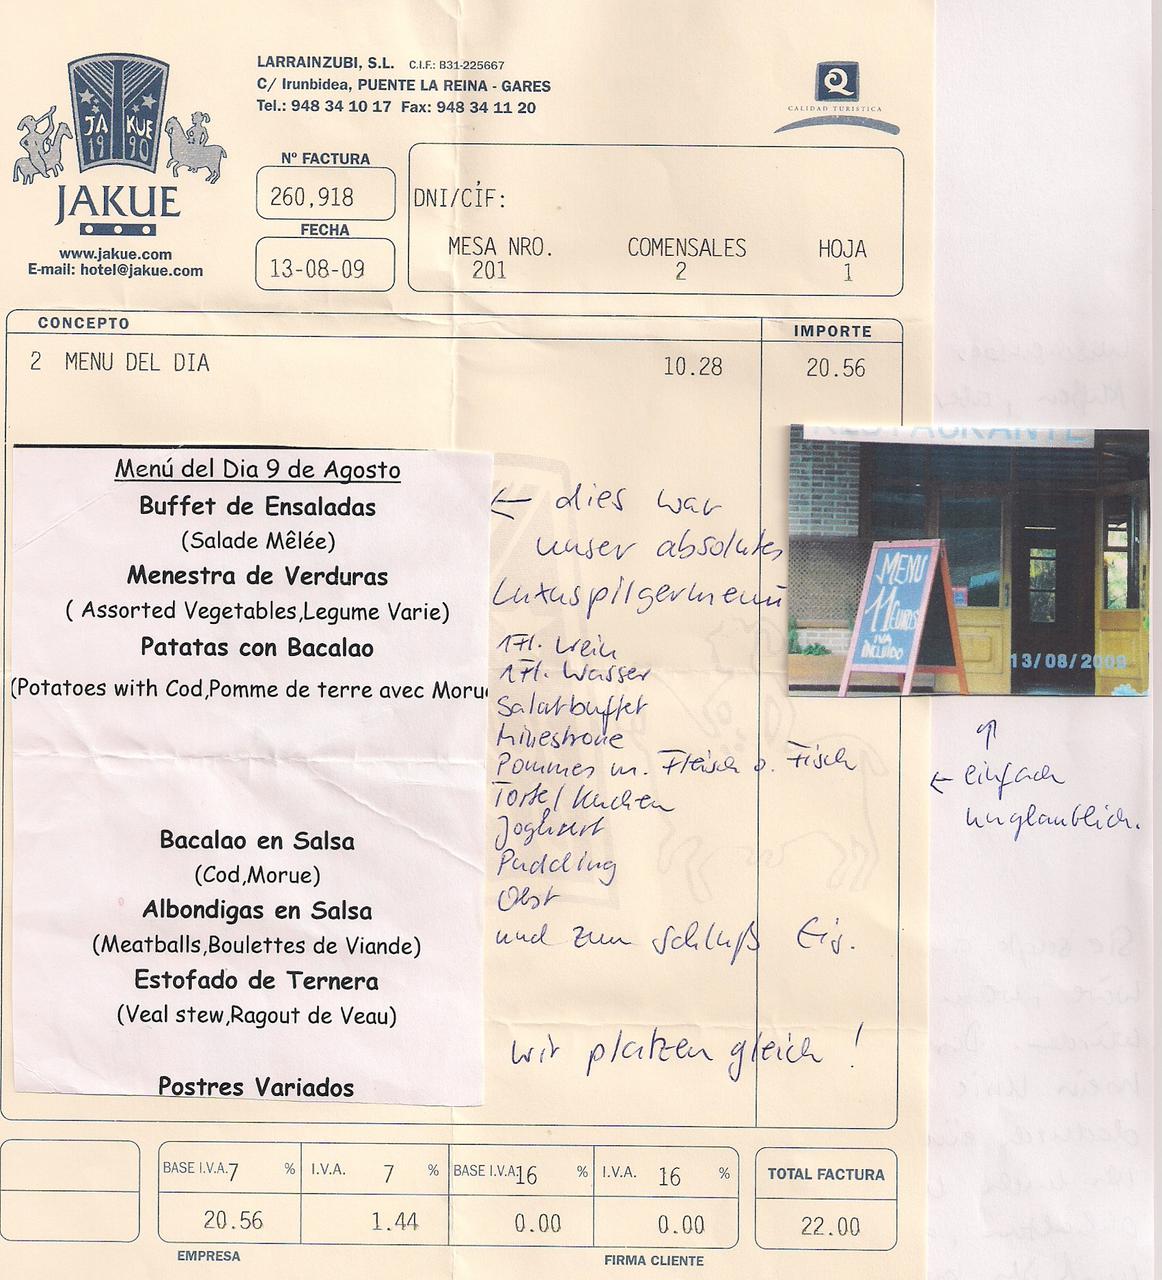 LARRAINZUBI, S.L. C.I.F.: B31-225667
C/ Irunbidea, PUENTE LA REINA - GARES
Tel.: 948 34 10 17 Fax: 948 34 11 20
Q
CALIDAD TURISTICA
JA KUE
19 90
JAKUE
www.jakue.com
E-mail: hotel@jakue.com
Nº FACTURA
260,918
FECHA
13-08-09
DNI/CIF:
MESA NRO. COMENSALES HOJA
201 2 1
CONCEPTO IMPORTE
2 MENU DEL DIA 10.28 20.56
Menú del Dia 9 de Agosto
Buffet de Ensaladas
(Salade Mêlée)
Menestra de Verduras
( Assorted Vegetables,Legume Varie)
Patatas con Bacalao
(Potatoes with Cod,Pomme de terre avec Moru
Bacalao en Salsa
(Cod,Morue)
Albondigas en Salsa
(Meatballs,Boulettes de Viande)
Estofado de Ternera
(Veal stew,Ragout de Veau)
Postres Variados
← dies war
unser absolutes
Luxuspilgermenü
1 Fl. Wein
1 Fl. Wasser
Salatbuffet
Minestrone
Pommes m. Fleisch o. Fisch
Torte/Kuchen
Joghurt
Pudding
Obst
und zum Schluß Eis.
wir platzen gleich!
RESTAURANTE
MENU
11 EUROS
IVA
INCLUIDO
13/08/2009
← einfach
unglaublich.
BASE I.V.A. 7 % I.V.A. 7 % BASE I.V.A. 16 % I.V.A. 16 % TOTAL FACTURA
20.56 1.44 0.00 0.00 22.00
EMPRESA FIRMA CLIENTE